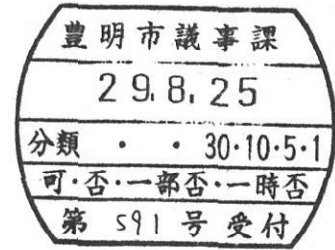 豊明市議事課
29.8.25
分類 ・ ・ 30・10・5・1
可・否・一部否・一時否
第 591 号 受付